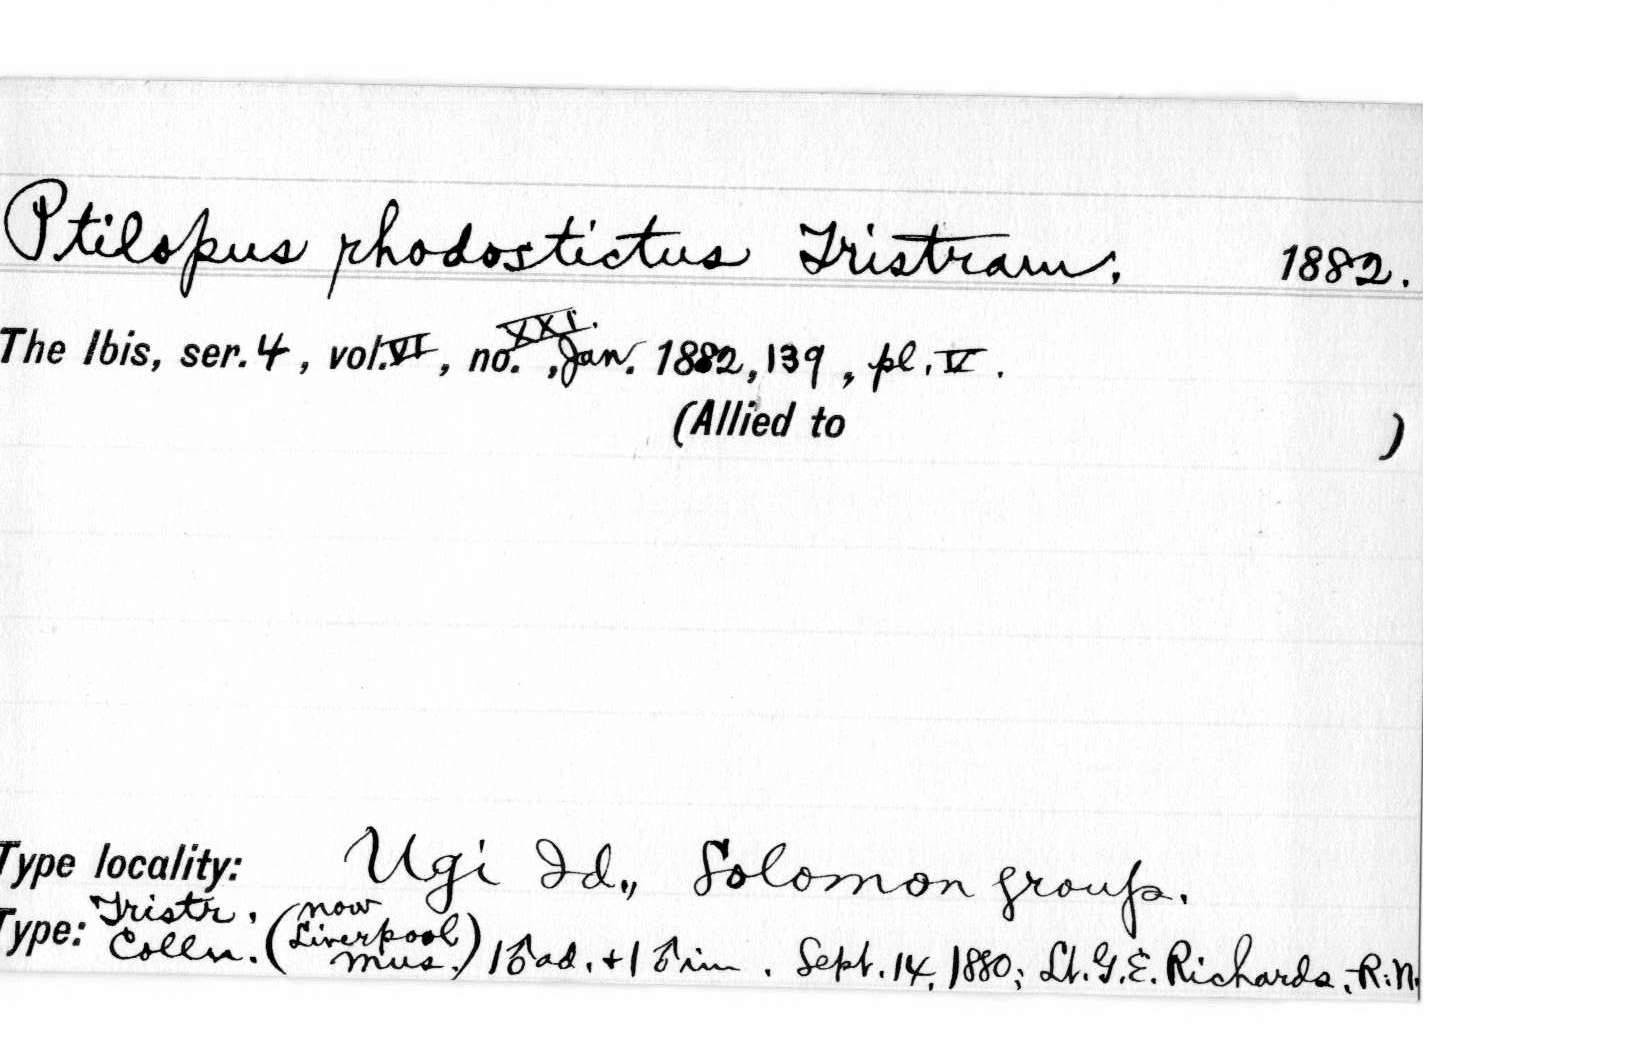 Ptilopus rhodostictus Tristram, 1882.
The Ibis, ser. 4, vol. VI, no. XXI., Jan. 1882, 139, pl. V.
(Allied to )
Type locality: Ugi Id., Solomon group.
Type: Tristr. Colln. (now Liverpool Mus.) 1 ♂ ad. + 1 ♂ im. Sept. 14, 1880; Lt. G.E. Richards, R.N.